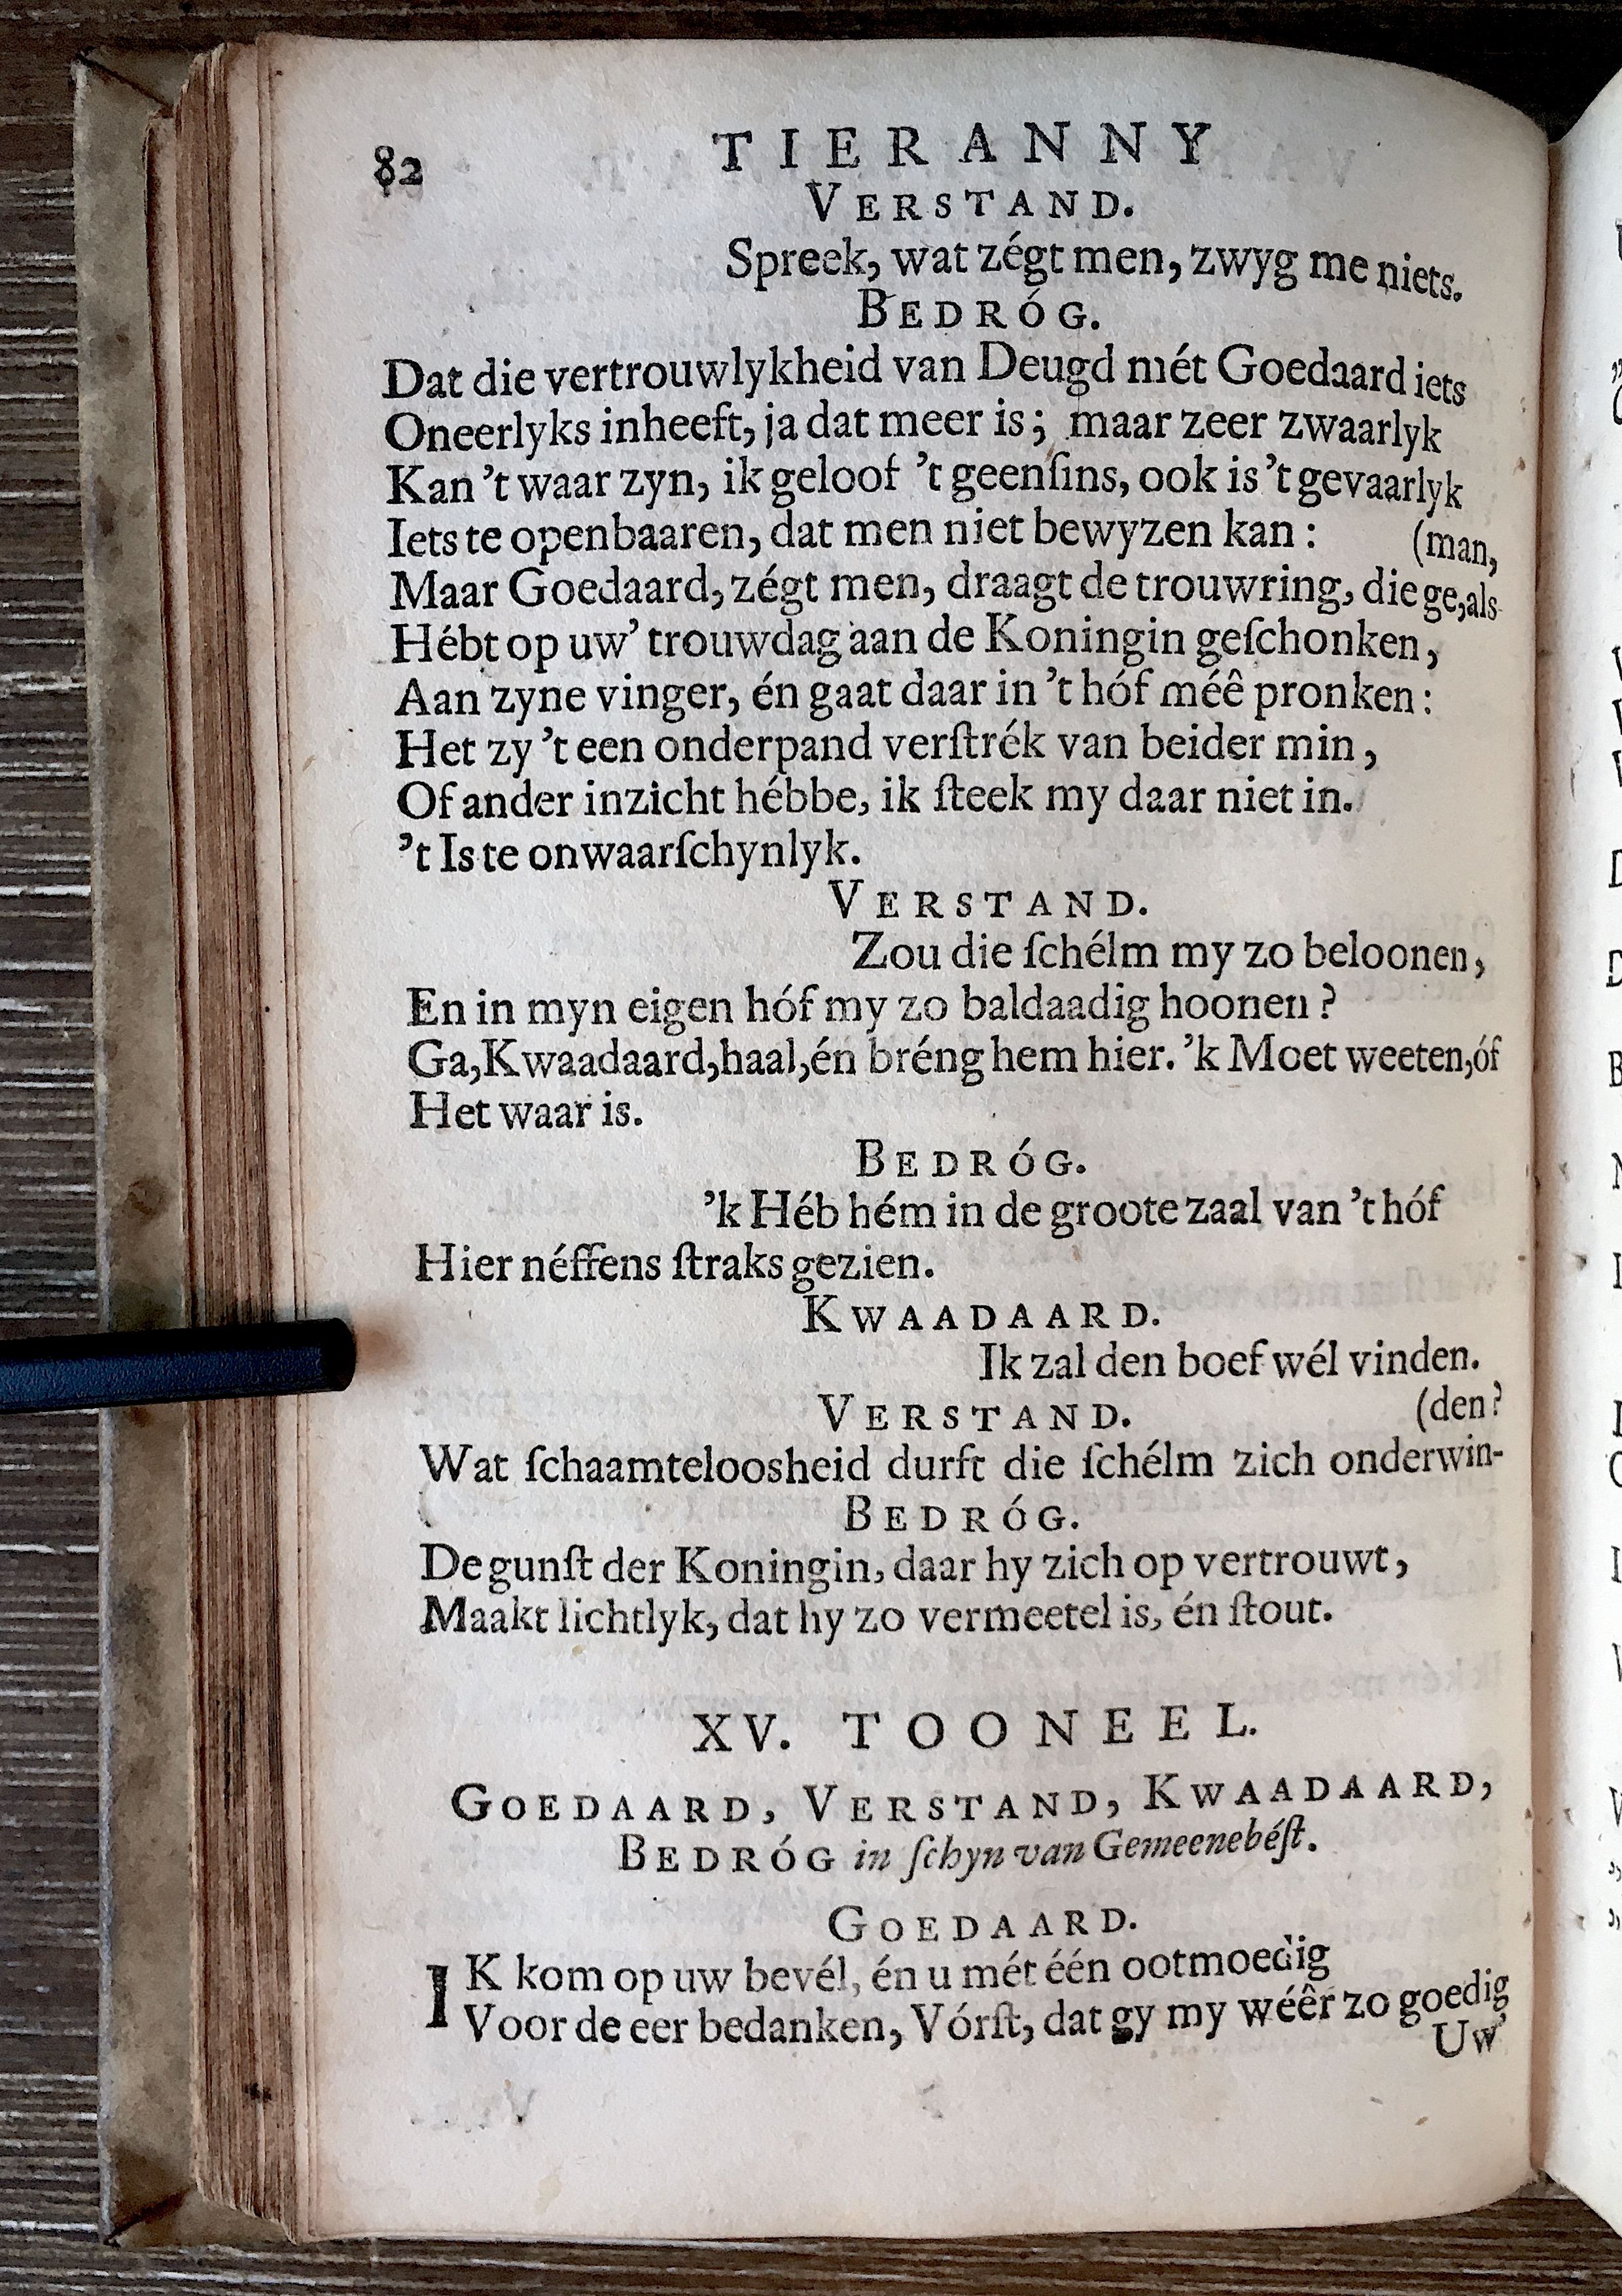 82 TIERANNY
VERSTAND.
Spreek, wat zégt men, zwyg me niets.
BEDRÓG.
Dat die vertrouwlykheid van Deugd mét Goedaard iets
Oneerlyks inheeft, ja dat meer is; maar zeer zwaarlyk
Kan 't waar zyn, ik geloof 't geenſins, ook is 't gevaarlyk
Iets te openbaaren, dat men niet bewyzen kan: (man,
Maar Goedaard, zégt men, draagt de trouwring, die ge, als
Hébt op uw' trouwdag aan de Koningin geſchonken,
Aan zyne vinger, én gaat daar in 't hóf méê pronken:
Het zy 't een onderpand verſtrék van beider min,
Of ander inzicht hébbe, ik ſteek my daar niet in.
't Is te onwaarſchynlyk.
VERSTAND.
Zou die ſchélm my zo beloonen,
En in myn eigen hóf my zo baldaadig hoonen?
Ga, Kwaadaard, haal, én bréng hem hier. 'k Moet weeten, óf
Het waar is.
BEDRÓG.
'k Héb hém in de groote zaal van 't hóf
Hier néffens ſtraks gezien.
KWAADAARD.
Ik zal den boef wél vinden.
VERSTAND. (den?
Wat ſchaamteloosheid durft die ſchélm zich onderwin-
BEDRÓG.
De gunſt der Koningin, daar hy zich op vertrouwt,
Maakt lichtlyk, dat hy zo vermeetel is, én ſtout.
XV. TOONEEL.
GOEDAARD, VERSTAND, KWAADAARD,
BEDRÓG in ſchyn van Gemeenebéſt.
GOEDAARD.
IK kom op uw bevél, én u mét één ootmoedig
Voor de eer bedanken, Vórſt, dat gy my wéêr zo goedig
Uw'